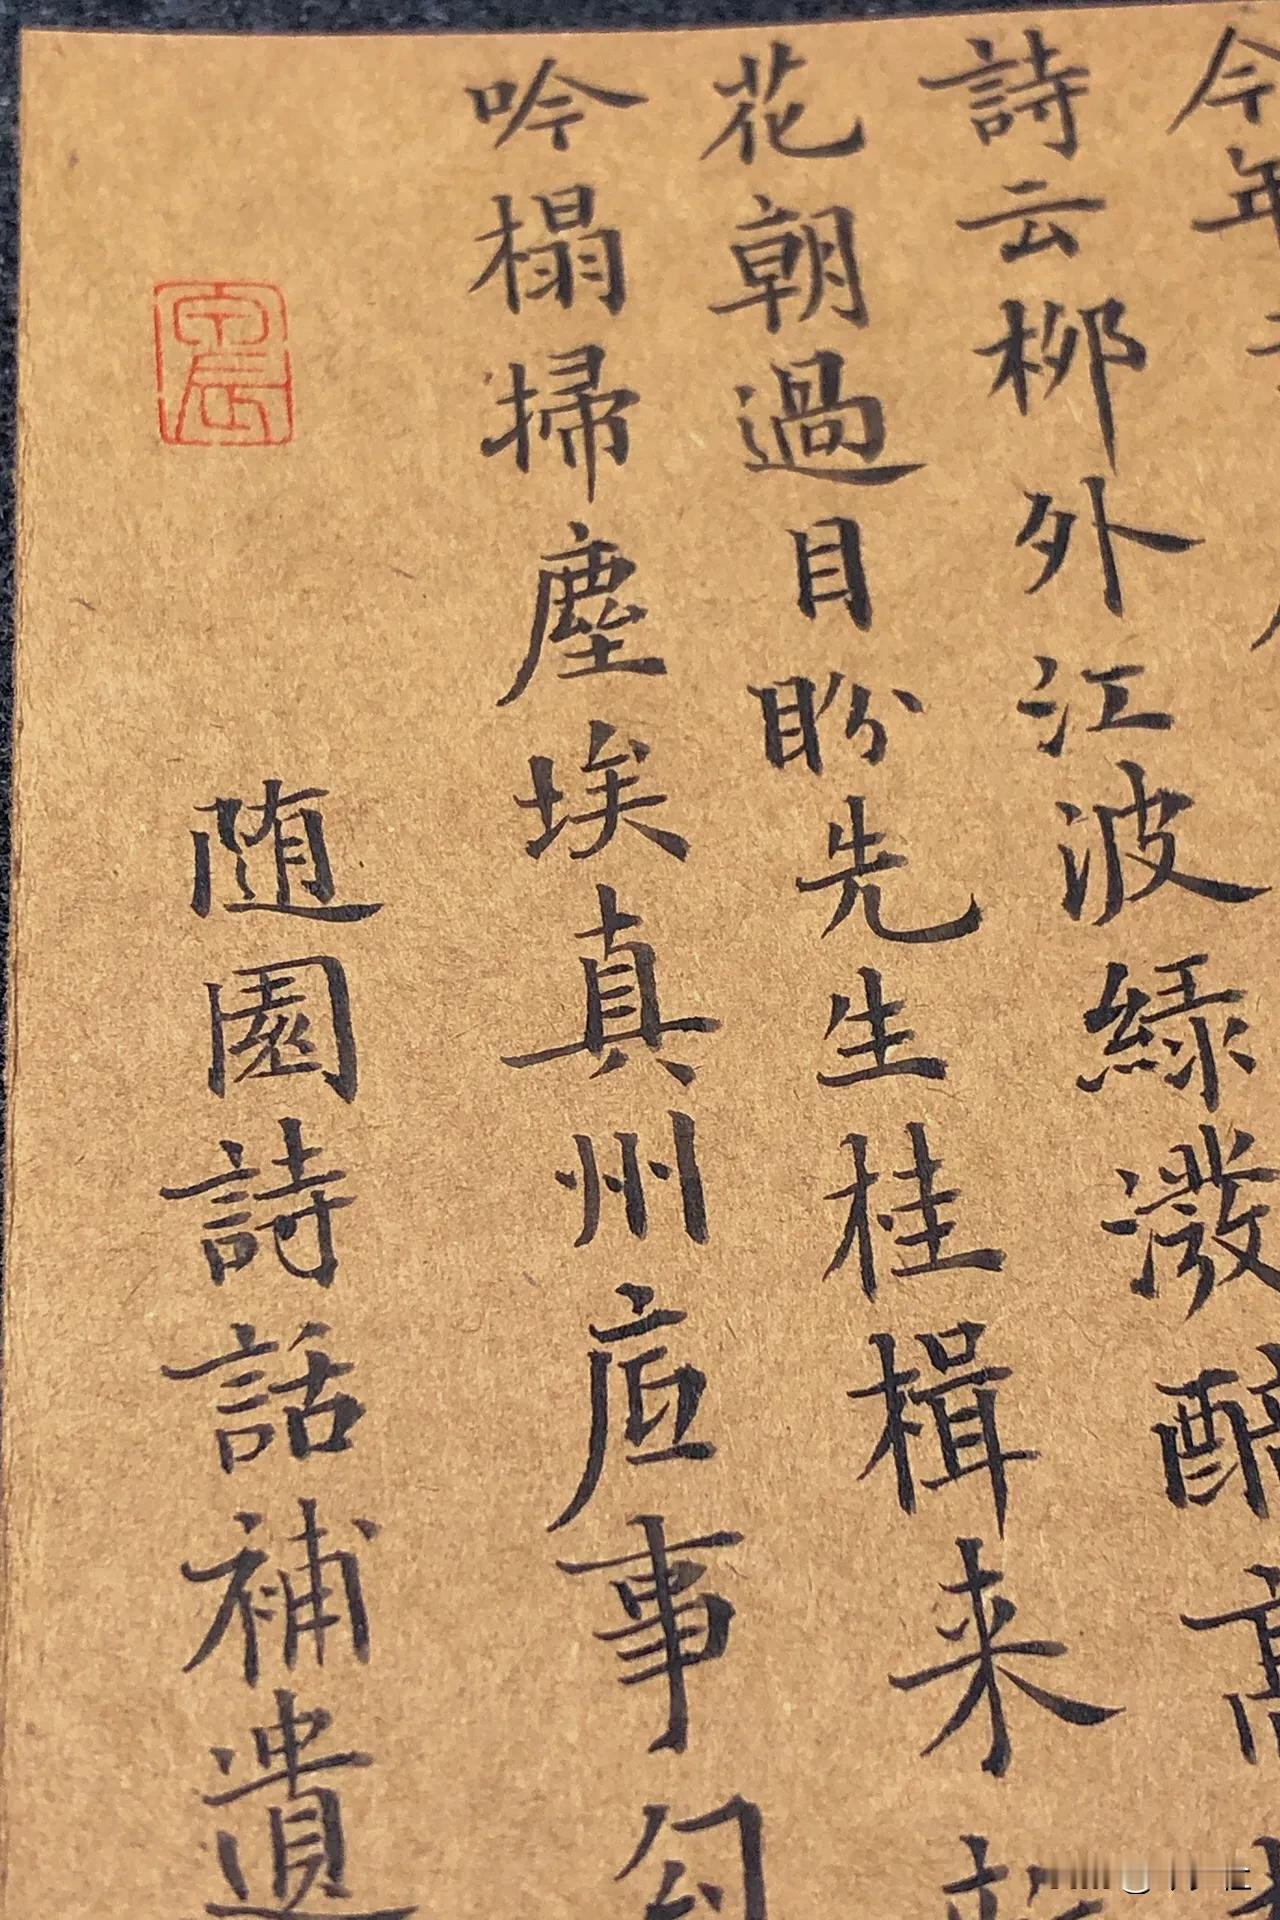 今年
詩云柳外江波綠潑醅高
花朝過目盼先生桂楫来
吟榻掃塵埃真州庭事勾
随園詩話補遺